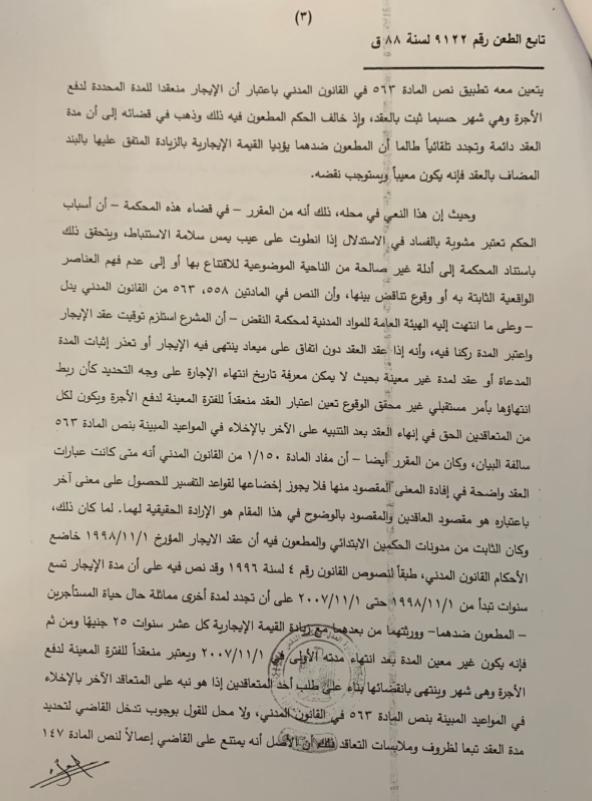 (٣)
تابع الطعن رقم ٩١٢٢ لسنة ٨٨ ق
يتعين معه تطبيق نص المادة ٥٦٣ في القانون المدني باعتبار أن الإيجار منعقدا للمدة المحددة لدفع
الأجرة وهي شهر حسبما ثبت بالعقد، وإذ خالف الحكم المطعون فيه ذلك وذهب في قضائه إلى أن مدة
العقد دائمة وتجدد تلقائياً طالما أن المطعون ضدهما يؤديا القيمة الإيجارية بالزيادة المتفق عليها بالبند
المضاف بالعقد فإنه يكون معيباً ويستوجب نقضه.
وحيث إن هذا النعي في محله، ذلك أنه من المقرر – في قضاء هذه المحكمة – أن أسباب
الحكم تعتبر مشوبة بالفساد في الاستدلال إذا انطوت على عيب يمس سلامة الاستنباط، ويتحقق ذلك
باستناد المحكمة إلى أدلة غير صالحة من الناحية الموضوعية للاقتناع بها أو إلى عدم فهم العناصر
الواقعية الثابتة به أو وقوع تناقض بينها، وأن النص في المادتين ٥٥٨، ٥٦٣ من القانون المدني يدل
– وعلى ما انتهت إليه الهيئة العامة للمواد المدنية لمحكمة النقض – أن المشرع استلزم توقيت عقد الإيجار
واعتبر المدة ركنا فيه، وأنه إذا عقد العقد دون اتفاق على ميعاد ينتهى فيه الإيجار أو تعذر إثبات المدة
المدعاة أو عقد لمدة غير معينة بحيث لا يمكن معرفة تاريخ انتهاء الإجارة على وجه التحديد كأن ربط
انتهاؤها بأمر مستقبلي غير محقق الوقوع تعين اعتبار العقد منعقداً للفترة المعينة لدفع الأجرة ويكون لكل
من المتعاقدين الحق في إنهاء العقد بعد التنبيه على الآخر بالإخلاء في المواعيد المبينة بنص المادة ٥٦٣
سالفة البيان، وكان من المقرر أيضا – أن مفاد المادة ١/١٥٠ من القانون المدني أنه متى كانت عبارات
العقد واضحة في إفادة المعنى المقصود منها فلا يجوز إخضاعها لقواعد التفسير للحصول على معنى آخر
باعتباره هو مقصود العاقدين والمقصود بالوضوح في هذا المقام هو الإرادة الحقيقية لهما. لما كان ذلك،
وكان الثابت من مدونات الحكمين الابتدائي والمطعون فيه أن عقد الايجار المؤرخ ١٩٩٨/١١/١ خاضع
لأحكام القانون المدني، طبقاً لنصوص القانون رقم ٤ لسنة ١٩٩٦ وقد نص فيه على أن مدة الإيجار تسع
سنوات تبدأ من ١٩٩٨/١١/١ حتى ٢٠٠٧/١١/١ على أن تجدد لمدة أخرى مماثلة حال حياة المستأجرين
– المطعون ضدهما– وورثتهما من بعدهما مع زيادة القيمة الإيجارية كل عشر سنوات ٢٥ جنيهًا ومن ثم
فإنه يكون غير معين المدة بعد انتهاء مدته الأولى في ٢٠٠٧/١١/١ ويعتبر منعقداً للفترة المعينة لدفع
الأجرة وهى شهر وينتهى بانقضائها بناء على طلب أحد المتعاقدين إذا هو نبه على المتعاقد الآخر بالإخلاء
في المواعيد المبينة بنص المادة ٥٦٣ في القانون المدني، ولا محل للقول بوجوب تدخل القاضي لتحديد
مدة العقد تبعا لظروف وملابسات التعاقد ذلك أن الأصل أنه يمتنع على القاضي إعمالاً لنص المادة ١٤٧